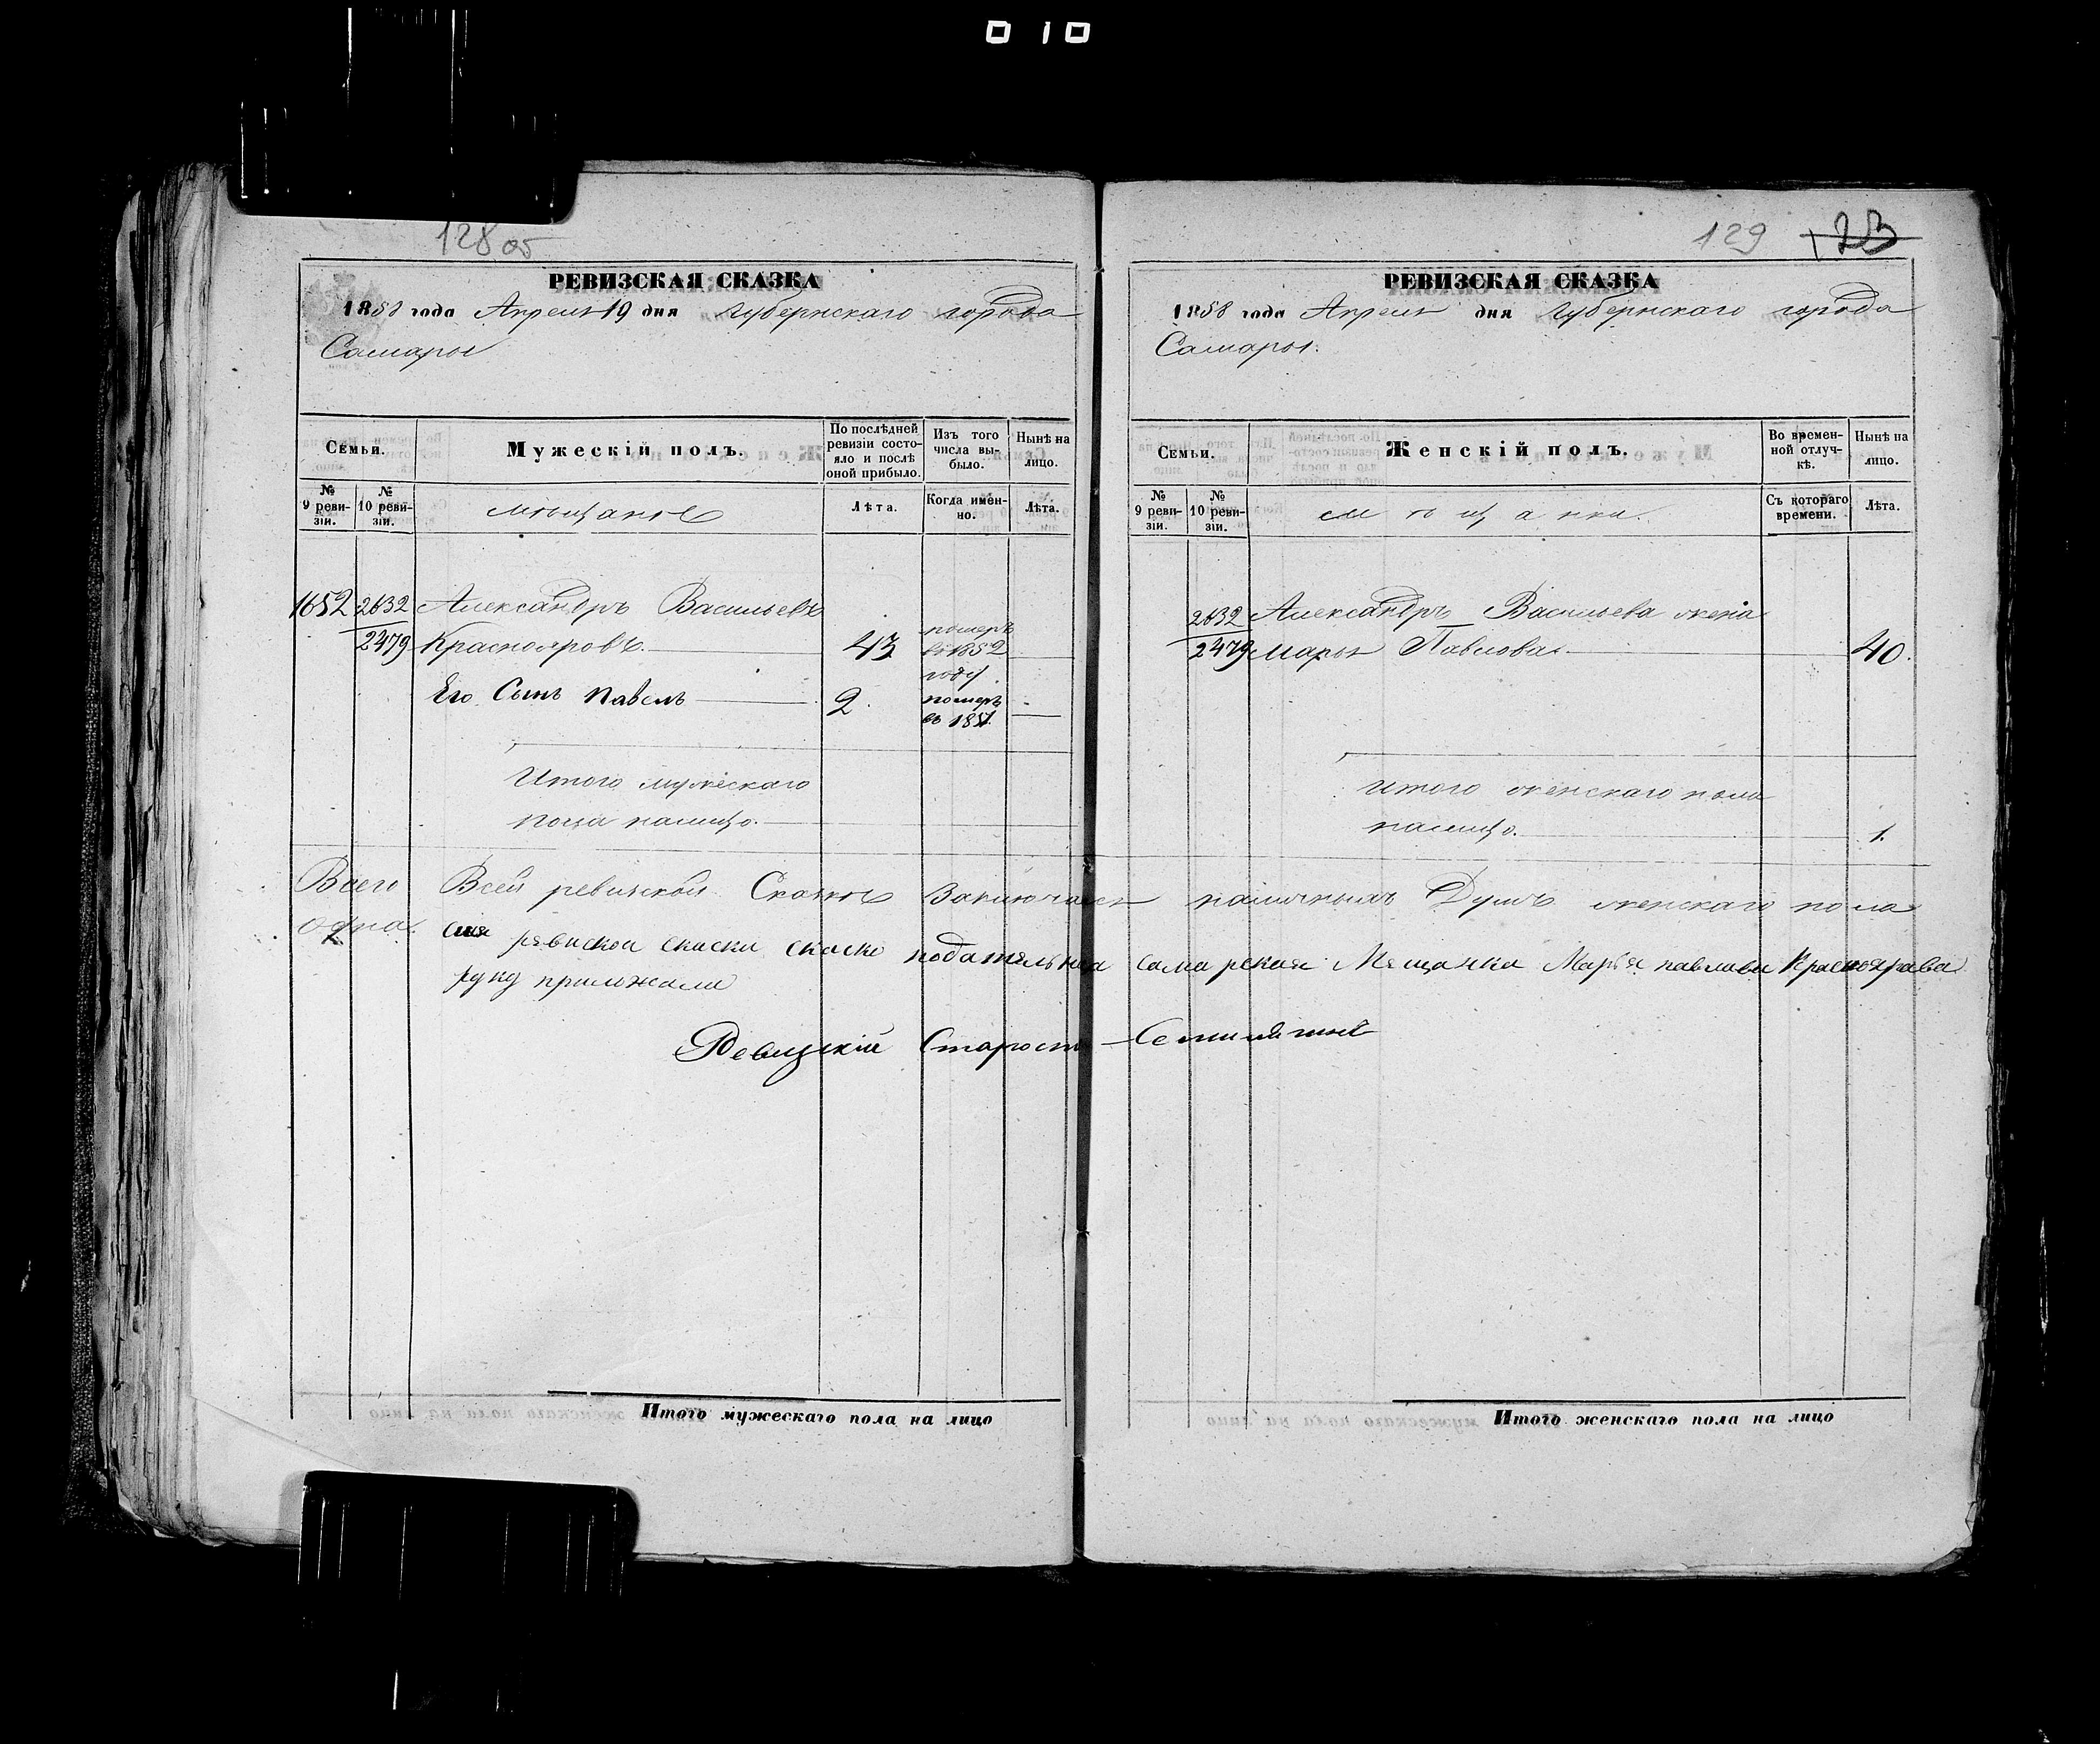 010
128 об
РЕВИЗСКАЯ СКАЗКА
1858 года Апреля 19 дня Губернскаго города
Самары
Семьи.
Мужескій полъ.
По послѣдней ревизіи состояло и послѣ оной прибыло.
Изъ того числа выбыло.
Нынѣ на лицо.
№ 9 ревизіи.
№ 10 ревизіи.
мѣщанѣ
Лѣта.
Когда именно.
Лѣта.
1652 2632 Александръ Васильевъ
2479 Краснояровъ. 43 померъ в 1852 году.
Его Сынъ Павелъ 2. померъ въ 1851.
Итого мужескаго
пола налицо.
129 123
РЕВИЗСКАЯ СКАЗКА
1858 года Апреля дня Губернскаго города
Самары.
Семьи.
Женскій полъ.
Во временной отлучкѣ.
Нынѣ на лицо.
№ 9 ревизіи.
№ 10 ревизіи.
мѣщанки.
Съ котораго времени.
Лѣта.
2632 Александръ Васильева жена
2479 Марья Павлова. 40.
Итого женскаго пола
налицо. 1.
Всего Всей ревизской Сказкѣ Заключается наличныхъ Душъ женскаго пола
одна.
сия ревиской скаски скаске подательница самарская Мещанка Марья павлава Красноярава
руку приложила
Ревизкій Староста
Итого мужескаго пола на лицо
Итого женскаго пола на лицо